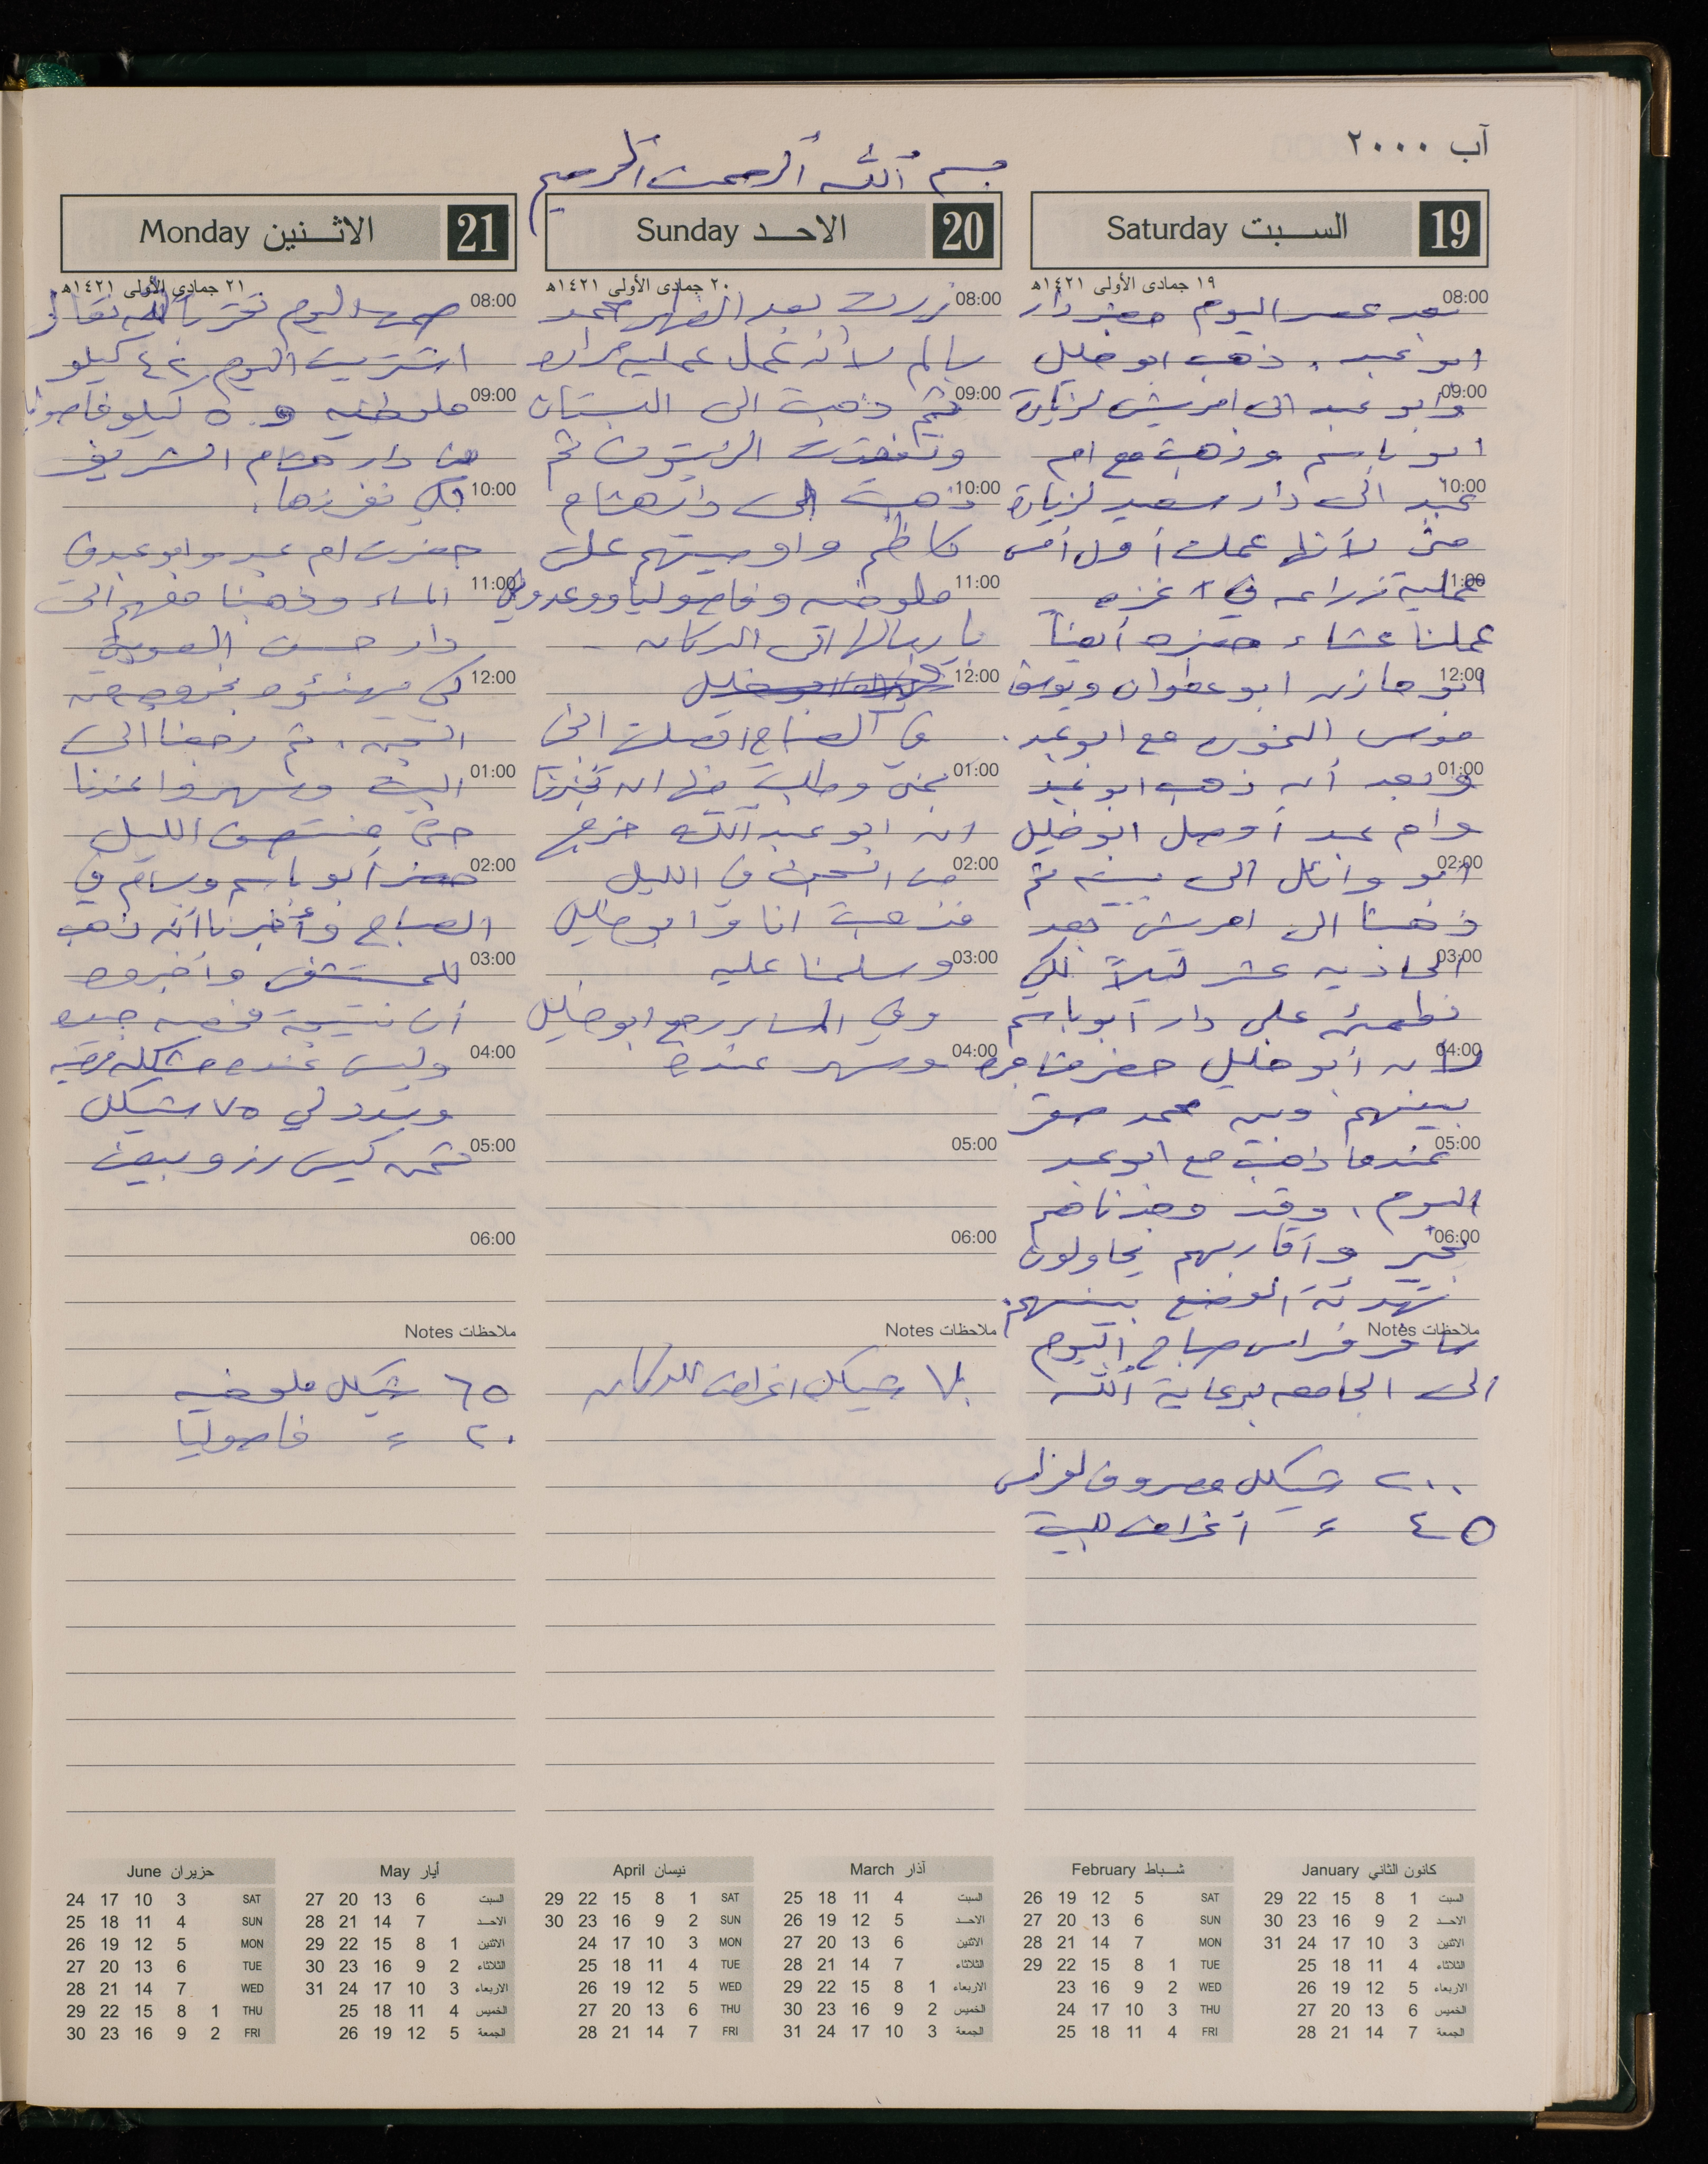 آب ٢٠٠٠
بسم الله الرحمن الرحيم
19 السبت Saturday
١٩ جمادى الأولى ١٤٢١هـ
08:00 بعد عصر اليوم حضر دار
ابو عبد. ذهب ابو خليل
09:00 وابو عبد الى امريش لزيارة
ابو باسم وذهبت مع ام
10:00 عبد الى دار سعيد لزيارة
منى لأنها عملت أول أمس
11:00 عملية زراعه في غزه
عملنا عشاء حضره أيضاً
12:00 ابو مازن ابو عطوان ويوسف
موسى مع ابو عبد.
01:00 وبعد أن ذهب ابو عبد
وام عبد أوصل ابو خليل
02:00 ابو وائل الى بيته ثم
ذهبنا الى امريش بعد
03:00 الحاديه عشر ليلاً لكي
نطمئن على دار أبو باسم
04:00 لأن أبو خليل حضر
بينهم وبين محمد صقر
05:00 عندما ذهب مع ابو عبد
اليوم، وقد وجدناهم
06:00 بخير وأقاربهم يحاولون
تهدئة الوضع بينهم.
ملاحظات Notes
سافر فراس صباح اليوم
الى الجامعه برعاية الله
٢٠٠ شيكل مصروف لفراس
٤٥ = أغراض للبيت
20 الاحد Sunday
٢٠ جمادى الأولى ١٤٢١هـ
08:00 زرت بعد الظهر محمد
سالم لأنه عمل عملية مراره
09:00 ثم ذهبت الى البستان
وتفقدت الزيتون ثم
10:00 ذهبت الى دار هشام
كاظم واوصيتهم على
11:00 ملوخيه وفاصوليا ووعدوني
بارسالها الى الدكان.
12:00
في الصباح اتصلت
01:00 وطلبت منها ان تخبرنا
ان ابو عبد الله خرج
02:00 من السجن في الليل
فذهبت انا وابو خليل
03:00 وسلمنا عليه
وفي المساء رجع ابو خليل
04:00 وسهر عنده
05:00
06:00
ملاحظات Notes
٧٠ شيكل اغراض للدكان
21 الاثنين Monday
٢١ جمادى الأولى ١٤٢١هـ
08:00 اليوم
اشتريت اليوم ٤٢ كيلو
09:00 ملوخيه و ٥ كيلو فاصوليا
من دار هشام الشريف
10:00 لكي نفرزها.
حضرت ام عبد وابو عبد في
11:00 المساء وذهبنا معهم الى
دار حسن
12:00 كي يهنئوه بخروجه من
السجن. ثم رجعنا الى
01:00 البيت وسهروا عندنا
حتى منتصف الليل
02:00 حضر أبو باسم وبسام في
الصباح وأخبرنا أنه ذهب
03:00 للمستشفى وأخبروه
أن نتيجة فحصه جيده
04:00 وليس عنده مشكله
وسدد لي ٧٥ شيكل
05:00 ثمن كيس رز وبيض
06:00
ملاحظات Notes
٦٥ شيكل ملوخيه
٢٠ = فاصوليا
كانون الثاني January
السبت 1 8 15 22 29
الاحد 2 9 16 23 30
الاثنين 3 10 17 24 31
الثلاثاء 4 11 18 25
الاربعاء 5 12 19 26
الخميس 6 13 20 27
الجمعة 7 14 21 28
شباط February
SAT 5 12 19 26
SUN 6 13 20 27
MON 7 14 21 28
TUE 1 8 15 22 29
WED 2 9 16 23
THU 3 10 17 24
FRI 4 11 18 25
آذار March
السبت 4 11 18 25
الاحد 5 12 19 26
الاثنين 6 13 20 27
الثلاثاء 7 14 21 28
الاربعاء 1 8 15 22 29
الخميس 2 9 16 23 30
الجمعة 3 10 17 24 31
نيسان April
SAT 1 8 15 22 29
SUN 2 9 16 23 30
MON 3 10 17 24
TUE 4 11 18 25
WED 5 12 19 26
THU 6 13 20 27
FRI 7 14 21 28
أيار May
السبت 6 13 20 27
الاحد 7 14 21 28
الاثنين 1 8 15 22 29
الثلاثاء 2 9 16 23 30
الاربعاء 3 10 17 24 31
الخميس 4 11 18 25
الجمعة 5 12 19 26
حزيران June
SAT 3 10 17 24
SUN 4 11 18 25
MON 5 12 19 26
TUE 6 13 20 27
WED 7 14 21 28
THU 1 8 15 22 29
FRI 2 9 16 23 30